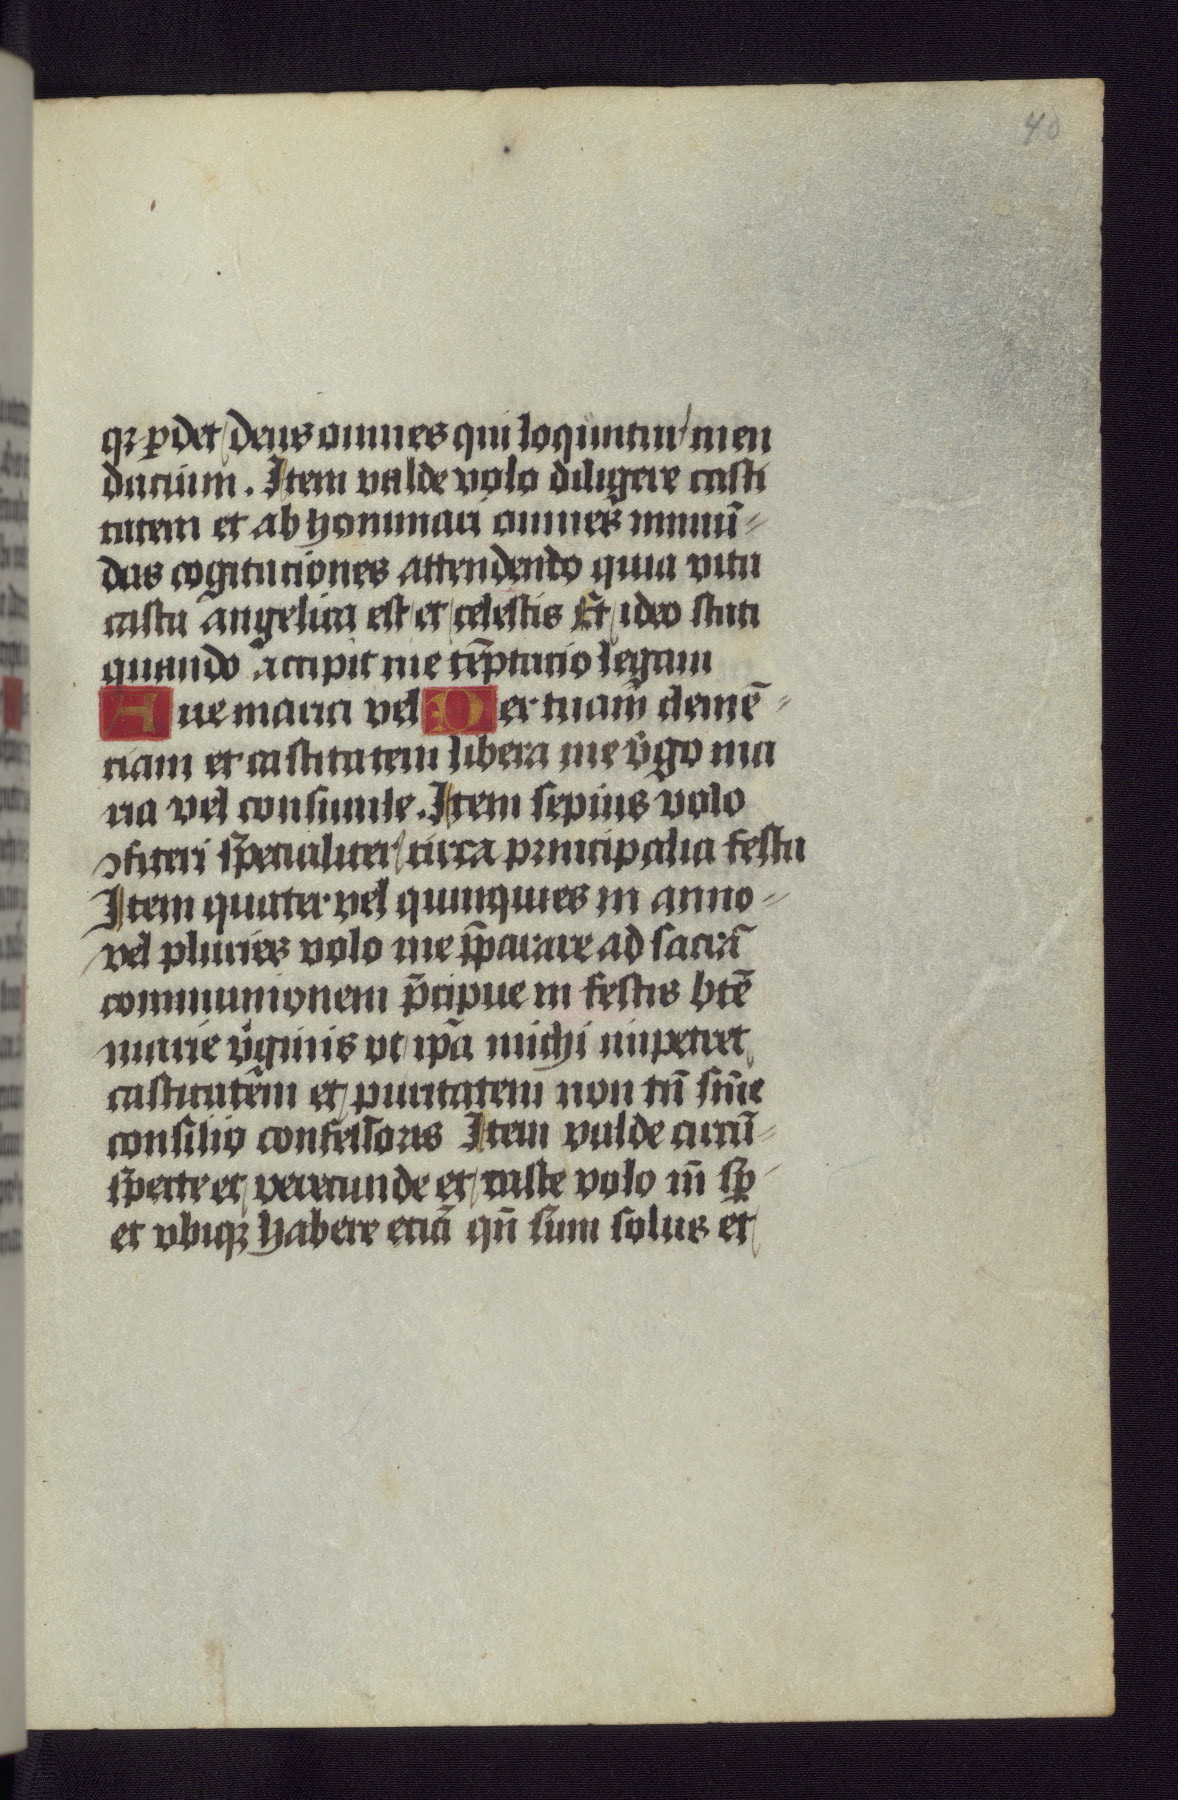 40
qꝫ ꝑdet deus omnes qui loquuntur men
dacium. Item valde volo diligere casti
tatem et abhominari omnes immū
das cogitaciones attendendo quia vita
casta angelica est et celestis Et ideo stati
quando accipit me tēptacio legam
Aue maria vel Per tuam clemē
ciam et castitatem libera me v̄go ma
ria vel consimile. Item sepius volo
ꝯfiteri sp̄ecialiter circa principalia festa
Item quater vel quinquies in anno
vel pluries volo me p̄parare ad sacrā
communionem p̄cipue in festis btē
marie v̄ginis vt ip̄a michi impetret
castitatem et puritatem non tn̄ sine
consilio confessoris Item valde circū
sp̄ecte et verecunde et caste volo m̄ sp̄
et vbiqꝫ habere eciā qn̄ sum solus et